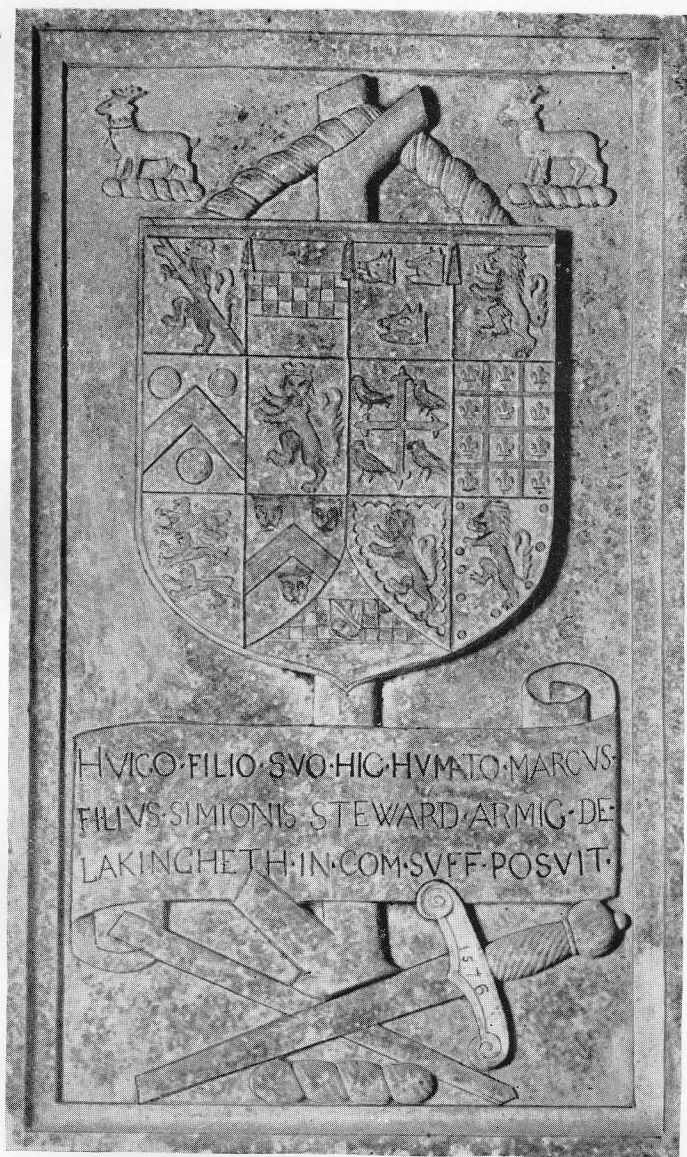 HVIGO·FILIO·SVO·HIC·HVMATO·MARCVS·
FILIVS·SIMIONIS·STEWARD·ARMIG·DE·
LAKINGHETH·IN·COM·SVFF·POSVIT·
1576